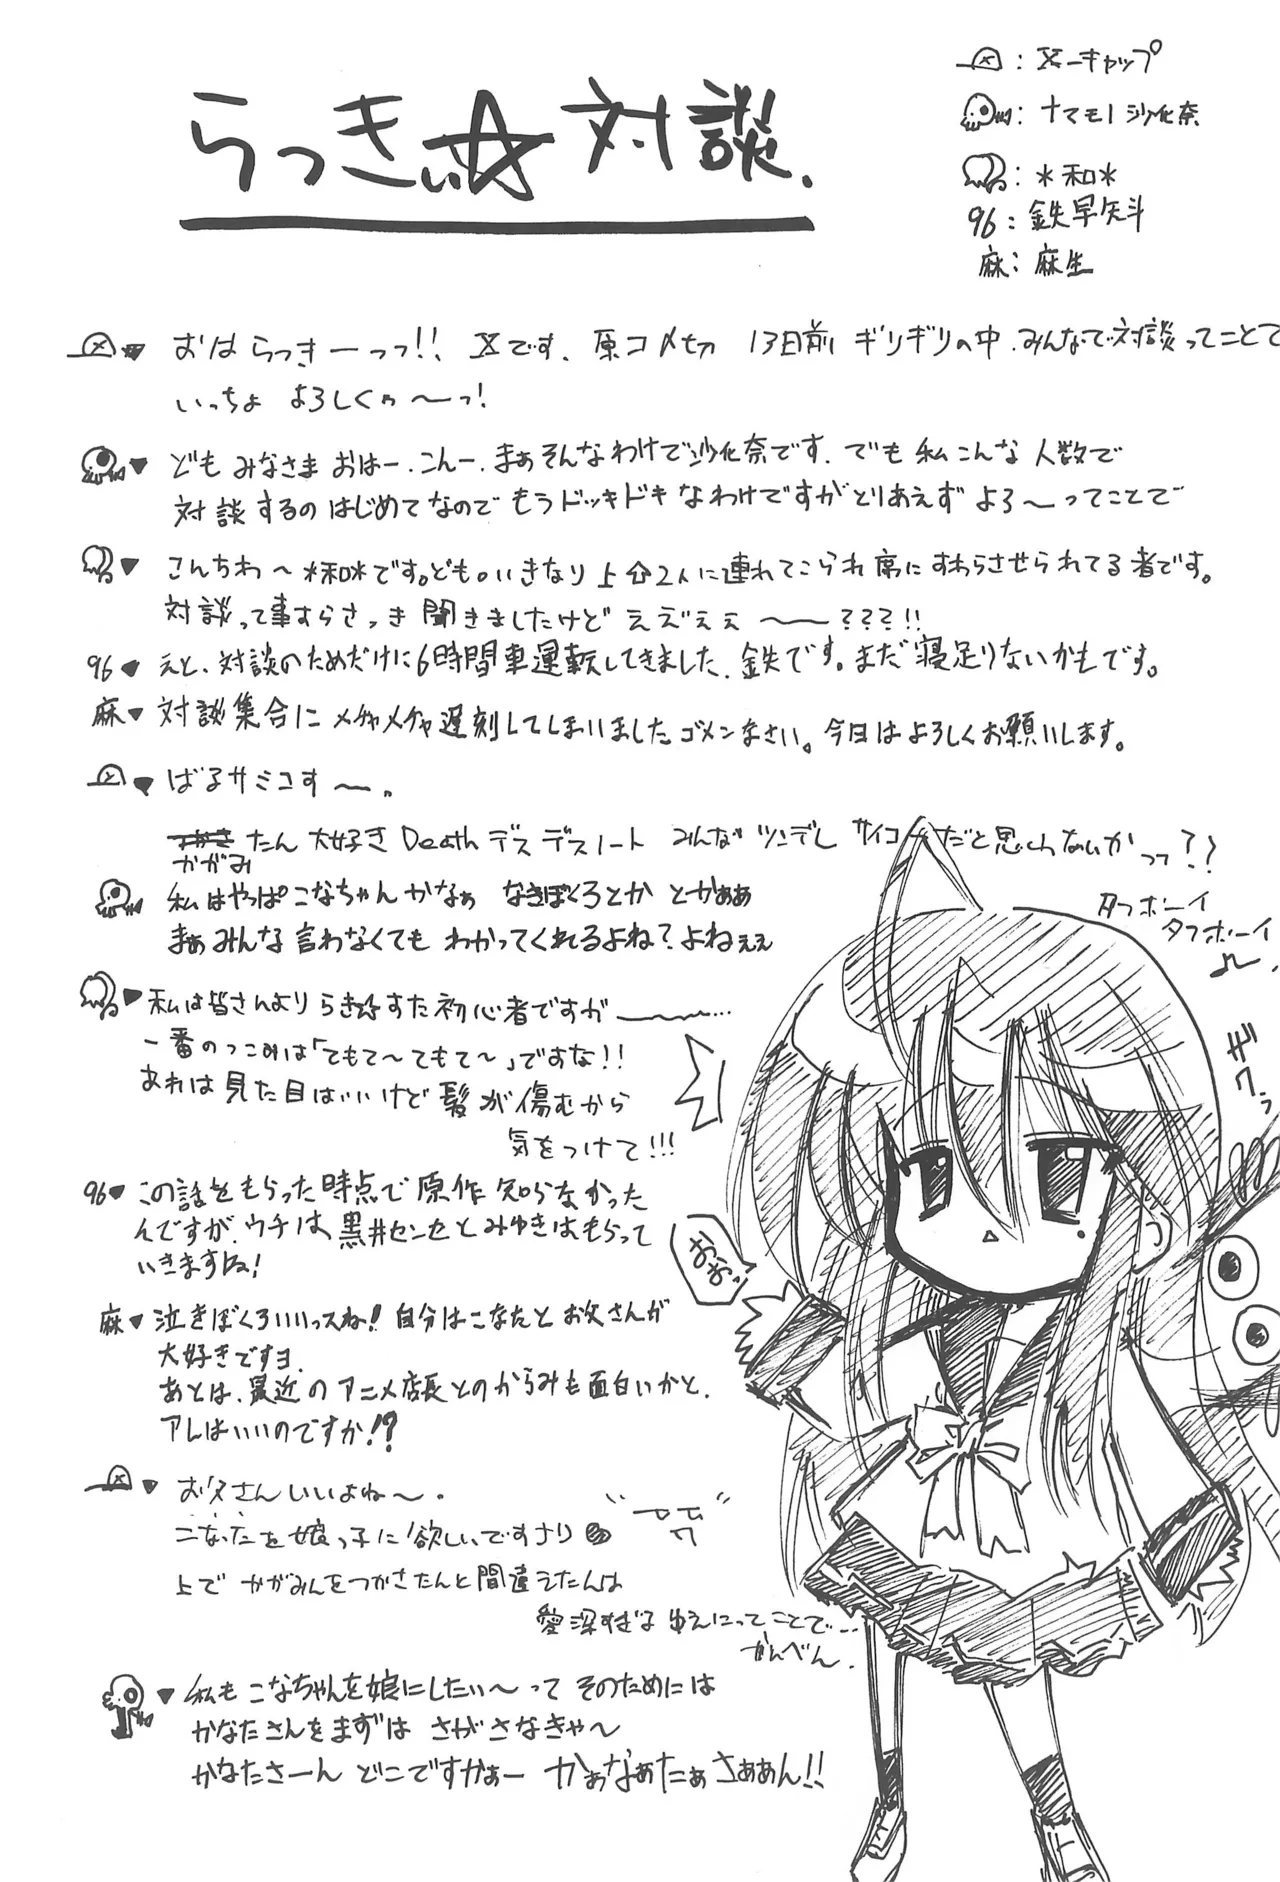 らっきぃ☆対談.
:X-キャップ
:ナマモノ沙化奈
:*和*
96:鉄早矢斗
麻:麻生
おはらっきーっっ!!、Xです、原コメ切 13日前 ギリギリの中、みんなで対談ってことで
いっちょ よろしくゥ〜っ!
ども みなさま おはー、こんー、まぁそんなわけで沙化奈です、でも私こんな人数で
対談するの はじめてなので もうドッキドキなわけですがとりあえず よろ〜ってことで
こんちわ〜*和*です。ども。いきなり上の2人に連れてこられ席にすわらさせられてる者です。
対談って事すらさっき聞きましたけど ええ゛ぇぇ〜〜???!!
96♥えと、対談のためだけに6時間車運転してきました、鉄です。まだ寝足りないかもです。
麻♥対談集合にメチャメチャ遅刻してしまいました。ゴメンなさい。今日はよろしくお願いします。
ばるサミコす〜。
たん 大好き Death デス デスノート みんな ツンデレ サイコーだと思わないかっっ??
かがみ
私はやっぱこなちゃんかなぁ なきぼくろとか とかぁぁ
まぁみんな言わなくても わかってくれるよね?よねぇぇ
私は皆さんより らき☆すた初心者ですが〜〜…
一番のつこみは「てもて〜てもて〜」ですな!!
あれは見た目はいいけど髪が傷むから
気をつけて!!!
96♥この話をもらった時点で原作知らなかった
んですが、ウチは、黒井センセとみゆきはもらって
いきますね!
麻♥泣きぼくろいいっスね!自分はこなたとお父さんが
大好きですヨ、
あとは、最近のアニメ店長とのからみも面白いかと、
アレはいいのですか!?
お父さんいいよね〜.
こなたを娘っ子に欲しいですナリ
上で かがみんをつかさたんと間違えたんは
愛深すぎる ゆえにってことで…
かんべん.
私も こなちゃんを娘にしたい〜って そのためには
かなたさんをまずは さがさなきゃ〜
かなたさーん どこですかぁー かぁなぁたぁさぁぁん!!
タフボーイ
タフボーイ
モワっ
おおっ